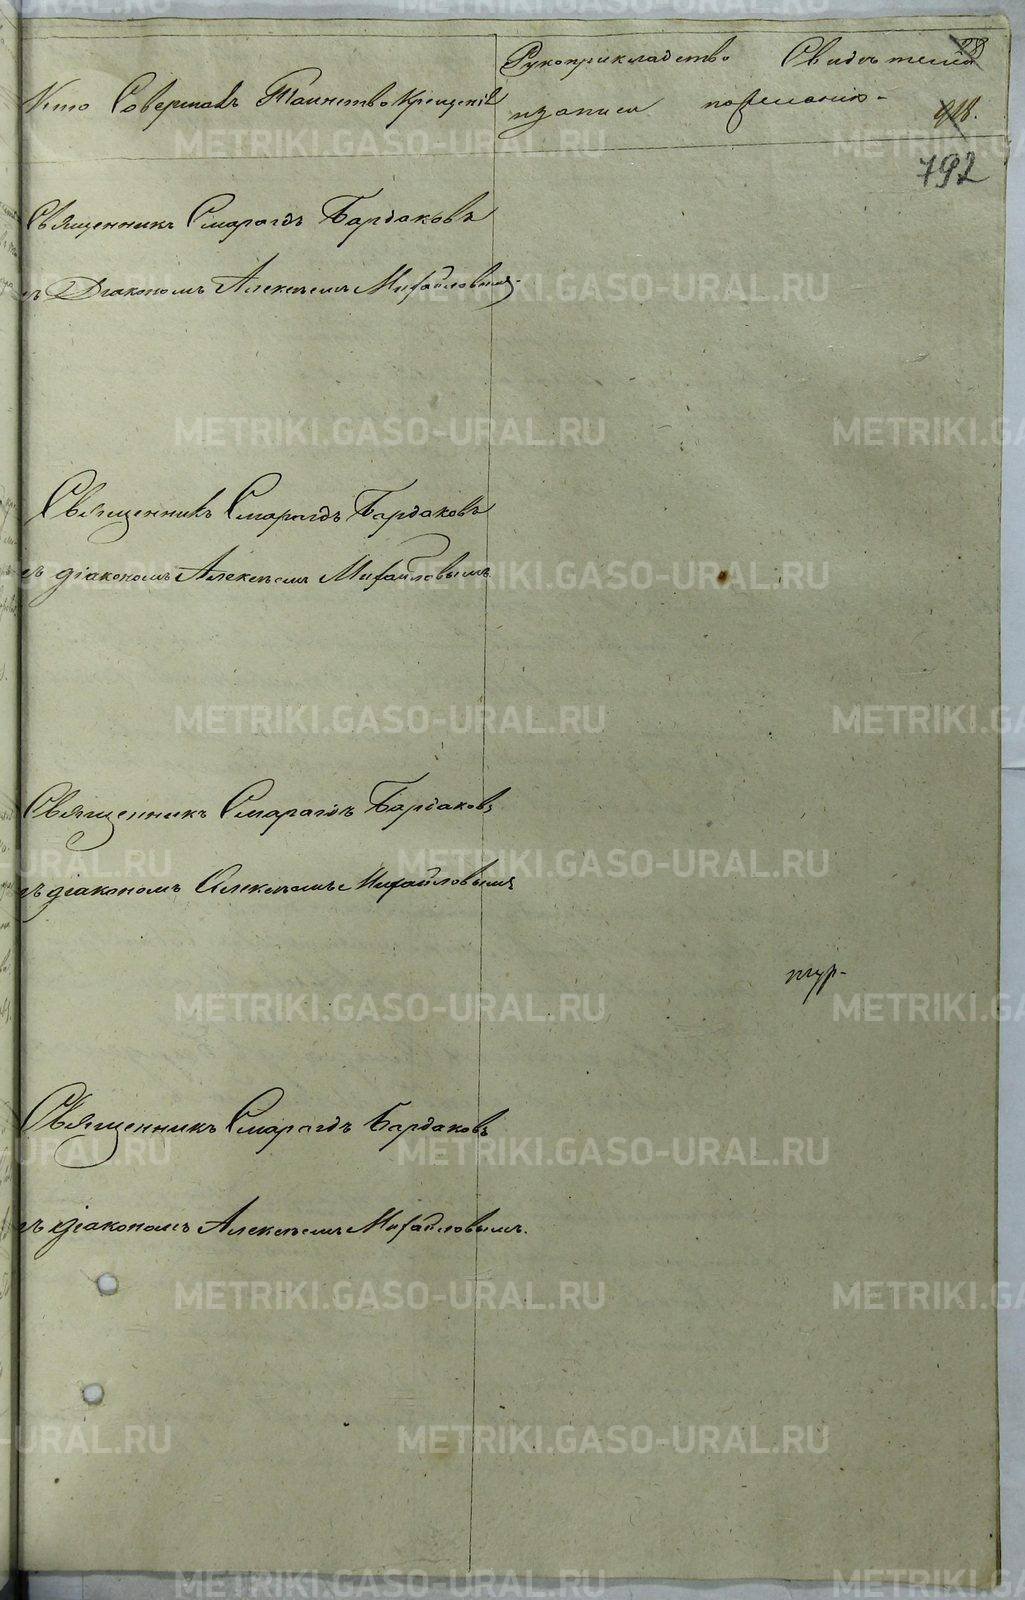 Кто Совершалъ Таинство Крещенія
Рукоприкладство Свидѣтелей
записи по желанію
28
918.
792
Священникъ Смарагдъ Бардаковъ
съ Діакономъ Алексѣемъ Михайловымъ.
Священникъ Смарагдъ Бардаковъ
съ діакономъ Алексѣемъ Михайловымъ.
Священникъ Смарагдъ Бардаковъ
съ діакономъ Алексѣемъ Михайловымъ
Священникъ Смарагдъ Бардаковъ
съ діакономъ Алексѣемъ Михайловымъ.
METRIKI.GASO-URAL.RU